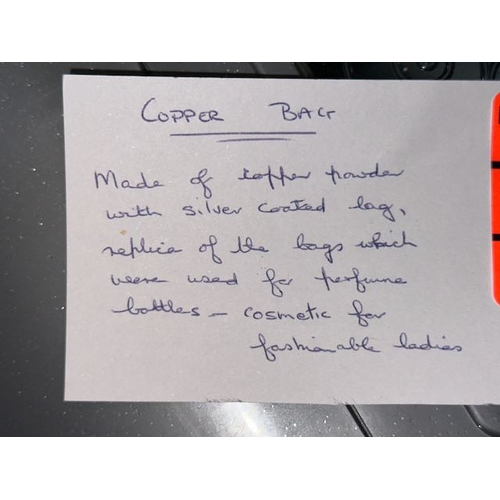 COPPER BAG
Made of copper powder
with silver coated bag,
replica of the bags which
were used for perfume
bottles - cosmetic for
fashionable ladies